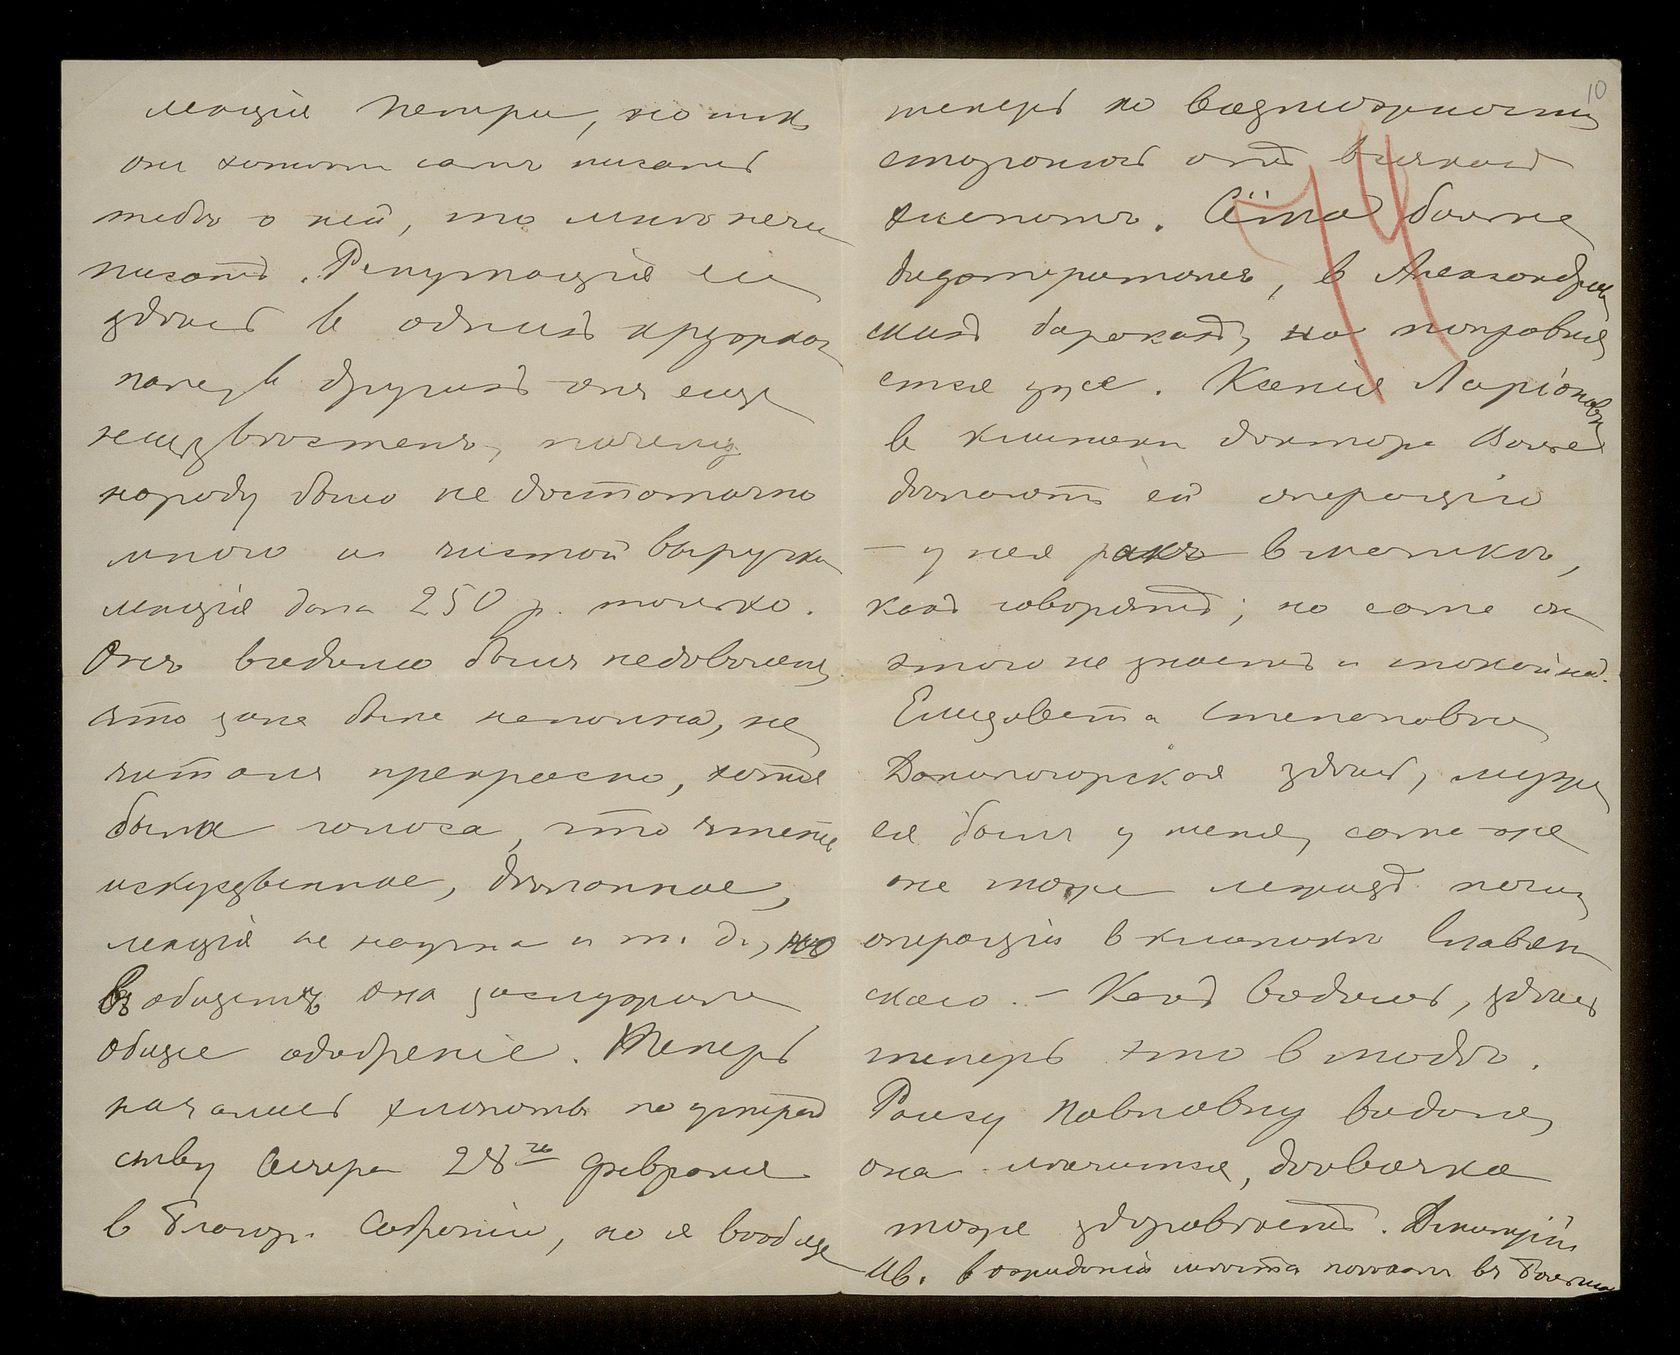 лекція Петри, но такъ
онъ хотѣлъ самъ писать
тебѣ о ней, то мнѣ нечего
писать. Репутація ея
здѣсь в однихъ кружкахъ
в другихъ онъ еще
неизвѣстенъ, почему
народу было не достаточно
много и чистой выручки
лекція дала 250 р. только.
Онъ видимо былъ недоволенъ
что зала была неполна, не
читалъ прекрасно, хотя
были голоса, что чтеніе
искуственное, дѣланное,
лекція не научна и т. д., но
въ общемъ она заслужила
общее одобреніе. Теперь
начались хлопоты по устрой
ству вечера 28го февраля
в Благор. Собраніи, но я вообще
10
теперь по возможности
сторонюсь отъ всякихъ
хлопотъ. 14 больна
дифтеритомъ, в Александров
скихъ баракахъ, но поправля
ется уже. Ксенія Ларіоновна
в клиникѣ доктора
дѣлаютъ ей операцію
– у нея ракъ в желудкѣ,
какъ говорятъ; но сама она
этого не знаетъ и спокойна.
Елизавета Степановна
здѣсь, мужъ
ея былъ у меня, сама же
она тоже лежитъ послѣ
операціи в клиникѣ Славян
скаго. – Какъ видишь, здѣсь
теперь это в модѣ.
Раису Павловну видѣла,
она лѣчится, дѣвочка
тоже здоровѣетъ. Дмитрій
Ив. в ожиданіи мѣста поѣхалъ въ